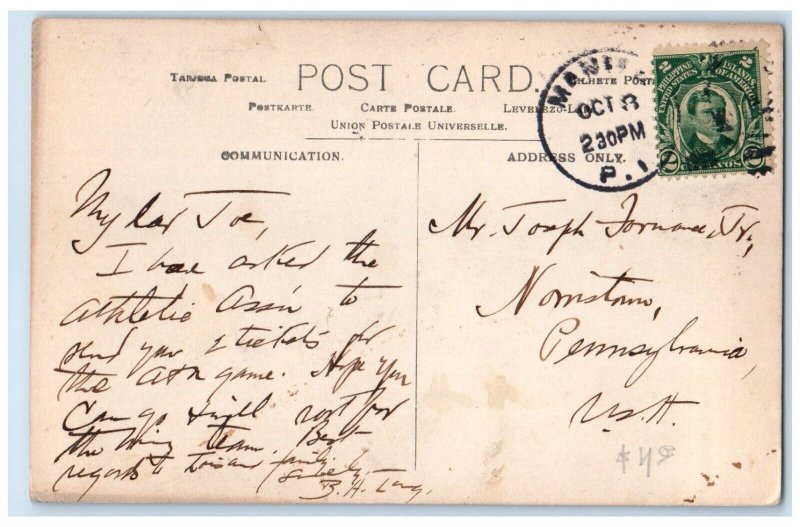 TARJETA POSTAL. POST CARD. BILHETE POSTAL
POSTKARTE. CARTE POSTALE. LEVELEZO-L
UNION POSTALE UNIVERSELLE.
COMMUNICATION.
ADDRESS ONLY.
MANILA
OCT 8
2 30 PM
P. I.
2 2
PHILIPPINE ISLANDS
UNITED STATES OF AMERICA
My dear Joe,
I have asked the
athletic Ass'n to
send you 2 tickets for
the A & N game. Hope you
can go & will root for
the Army team. Best
regards to and family.
Sincerely,
B. H.
Mr. Joseph Fornance, Jr.,
Norristown,
Pennsylvania,
U.S.A.